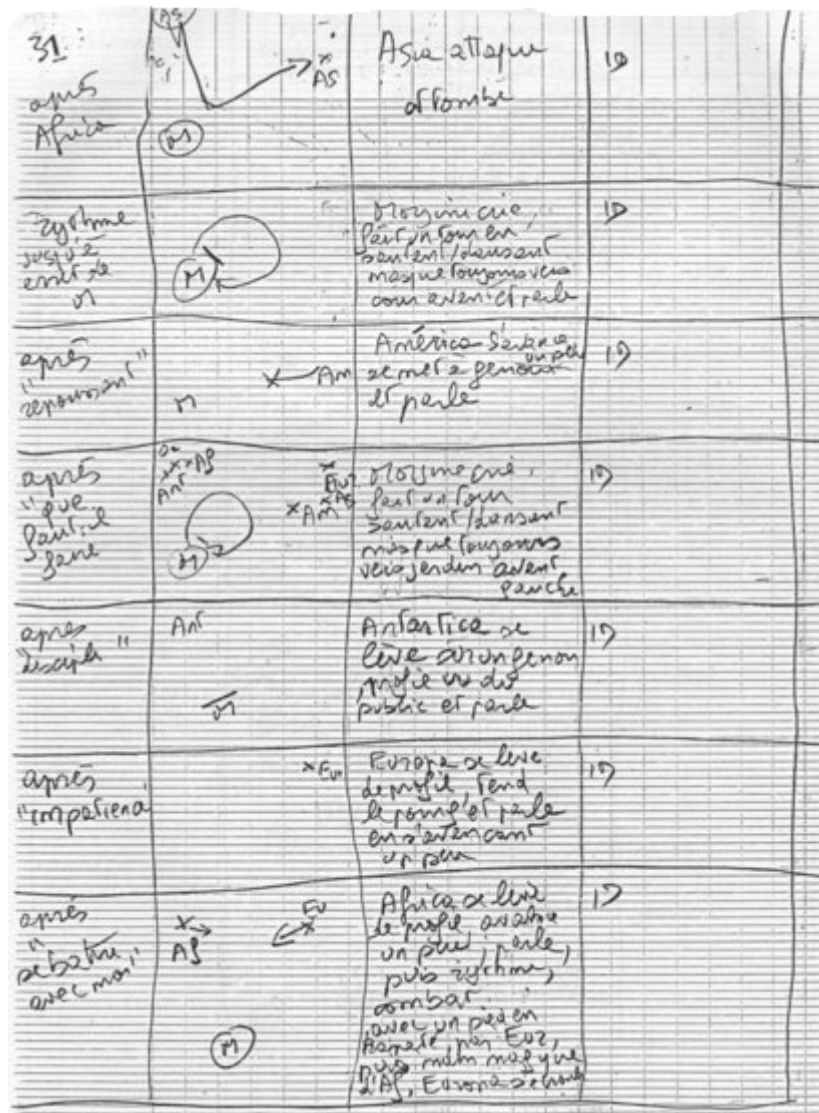 31
après
Africa
AS
x
AS
M
Asia attaque
et tombe
ID
rythme
jusqu'à
M
M
crie,
fait un tour en
sautant/dansant
masque toujours vers
cour avant et parle
ID
après
"repoussant"
M
x Am
América s'avance
un peu
se met à genoux
et parle
ID
après
"que
faut-il
faire
x x x Af
Ant
M
x
Eur
x AS
x Am
crie,
fait un tour
sautant/dansant
masque toujours
vers jardin avant
gauche
ID
après
"disciple"
Ant
M
Antartica se
lève d'un genou
profil vu du
public et parle
ID
après
"impatiena
x Eur
Europa se lève
de profil, tend
le poing et parle
en s'avançant
un peu
ID
après
"se battre
avec moi"
x
Af
Eu
x
M
Africa se lève
de profil, avance
un peu, parle,
puis rythme,
combat
avec un pied en
par Eur,
puis main magique
d'Af, Europa
ID